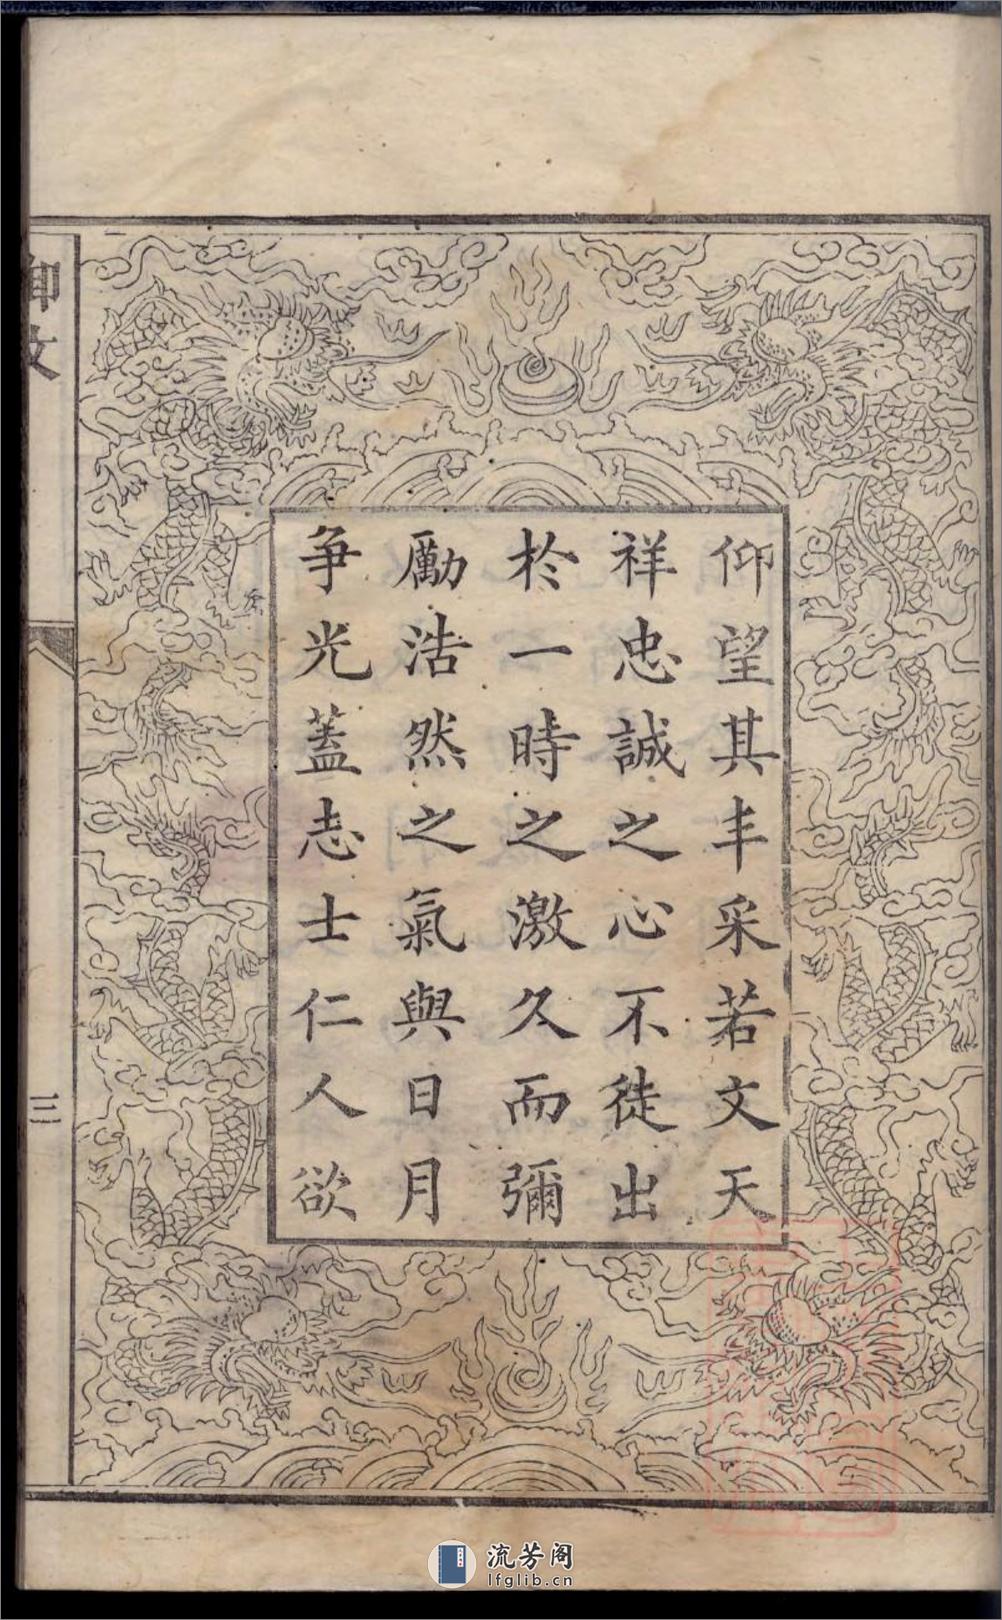 仰望其丰采若文天
祥忠誠之心不徒出
於一時之激久而彌
勵浩然之氣與日月
爭光蓋志士仁人欲
御文
三
流芳阁
lfglib.cn